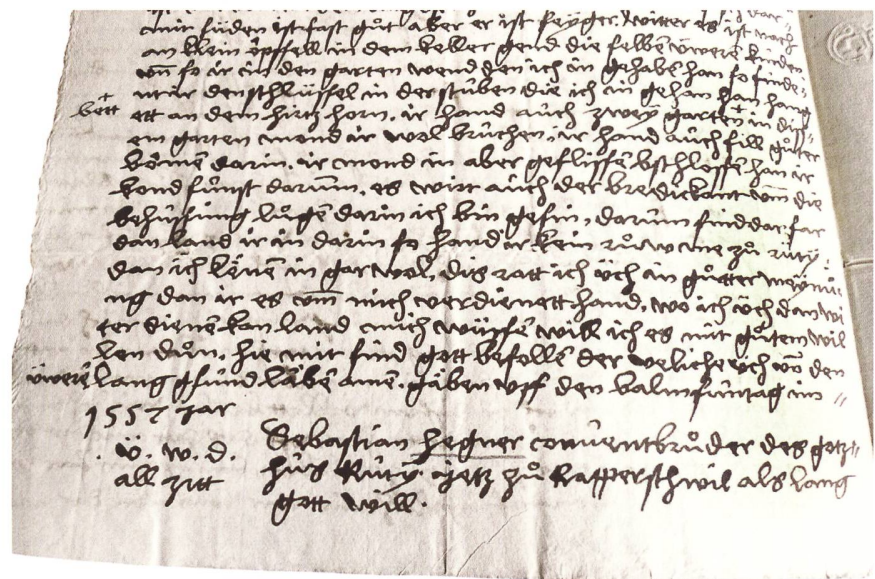 mir füden ist fast gůt aber er ist seyger. witter es ist noch
an klein öpffell in dem keller gend die selben üweren kinden
vnd so ir in den garten wend den ich in gehabt han so finde-
nt ir den schlüssel in der stuben die ich in gehan han hang
bett ett an dem hirtz horn. ir hand auch zwey garten + in diss-
em garten mond ir wol bruchen. ir hand auch fill gůtter
bömen darin. ir mond in aber geflissen bschlossen han ir
kond sunst darum. es wirt auch der bredickant vm die
behusung lůgen darin ich bin gesin, darum sind dar far
dan land ir in darin so hand ir kein růw me zů rüty.
dan ich kenen in gar wol, dis ratt ich üch in gůtter meynu-
ng dan ir es vm mich verdienett hand. wo ich üch dan wi
ter dienen kan land mich wüssen will ich es mit gůtem wil
len důn. hie mit sind gott befollen der welliche üch vnd den
üweren lang gsund läben amen. gäben vff den balmsuntag im
1557 jar
ü. w. d. Sebastian Hegner conuentbrůder des gotz-
all zitt hus Rüty. yetz zů Rapperschwil als lang
gott will.